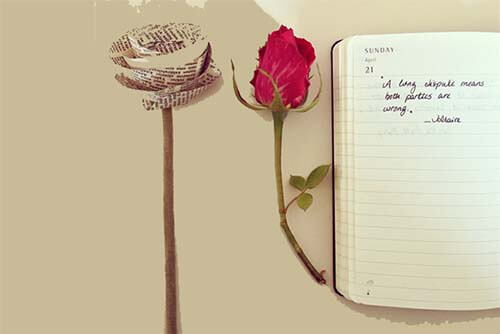 SUNDAY
April
21
A long dispute means
both parties are
wrong.
_Voltaire